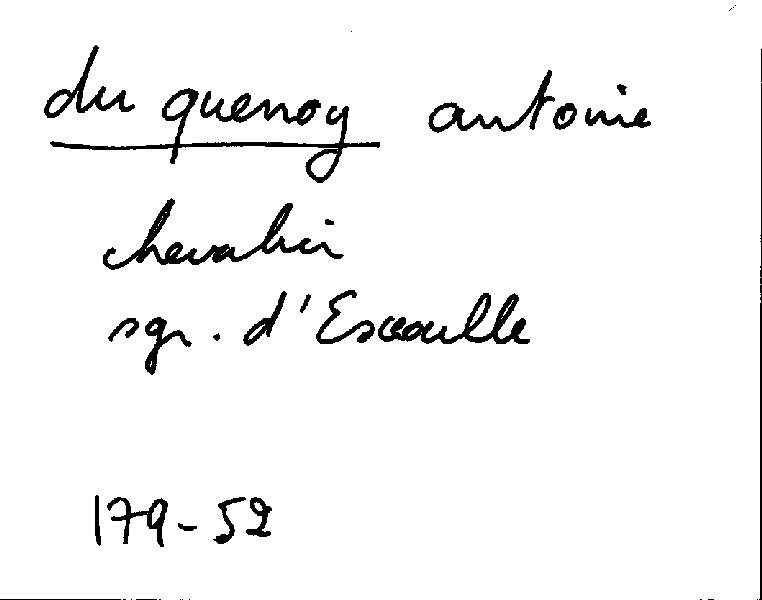 du quenoy antoine
chevalier
sgr. d'Escaoulle
179-52